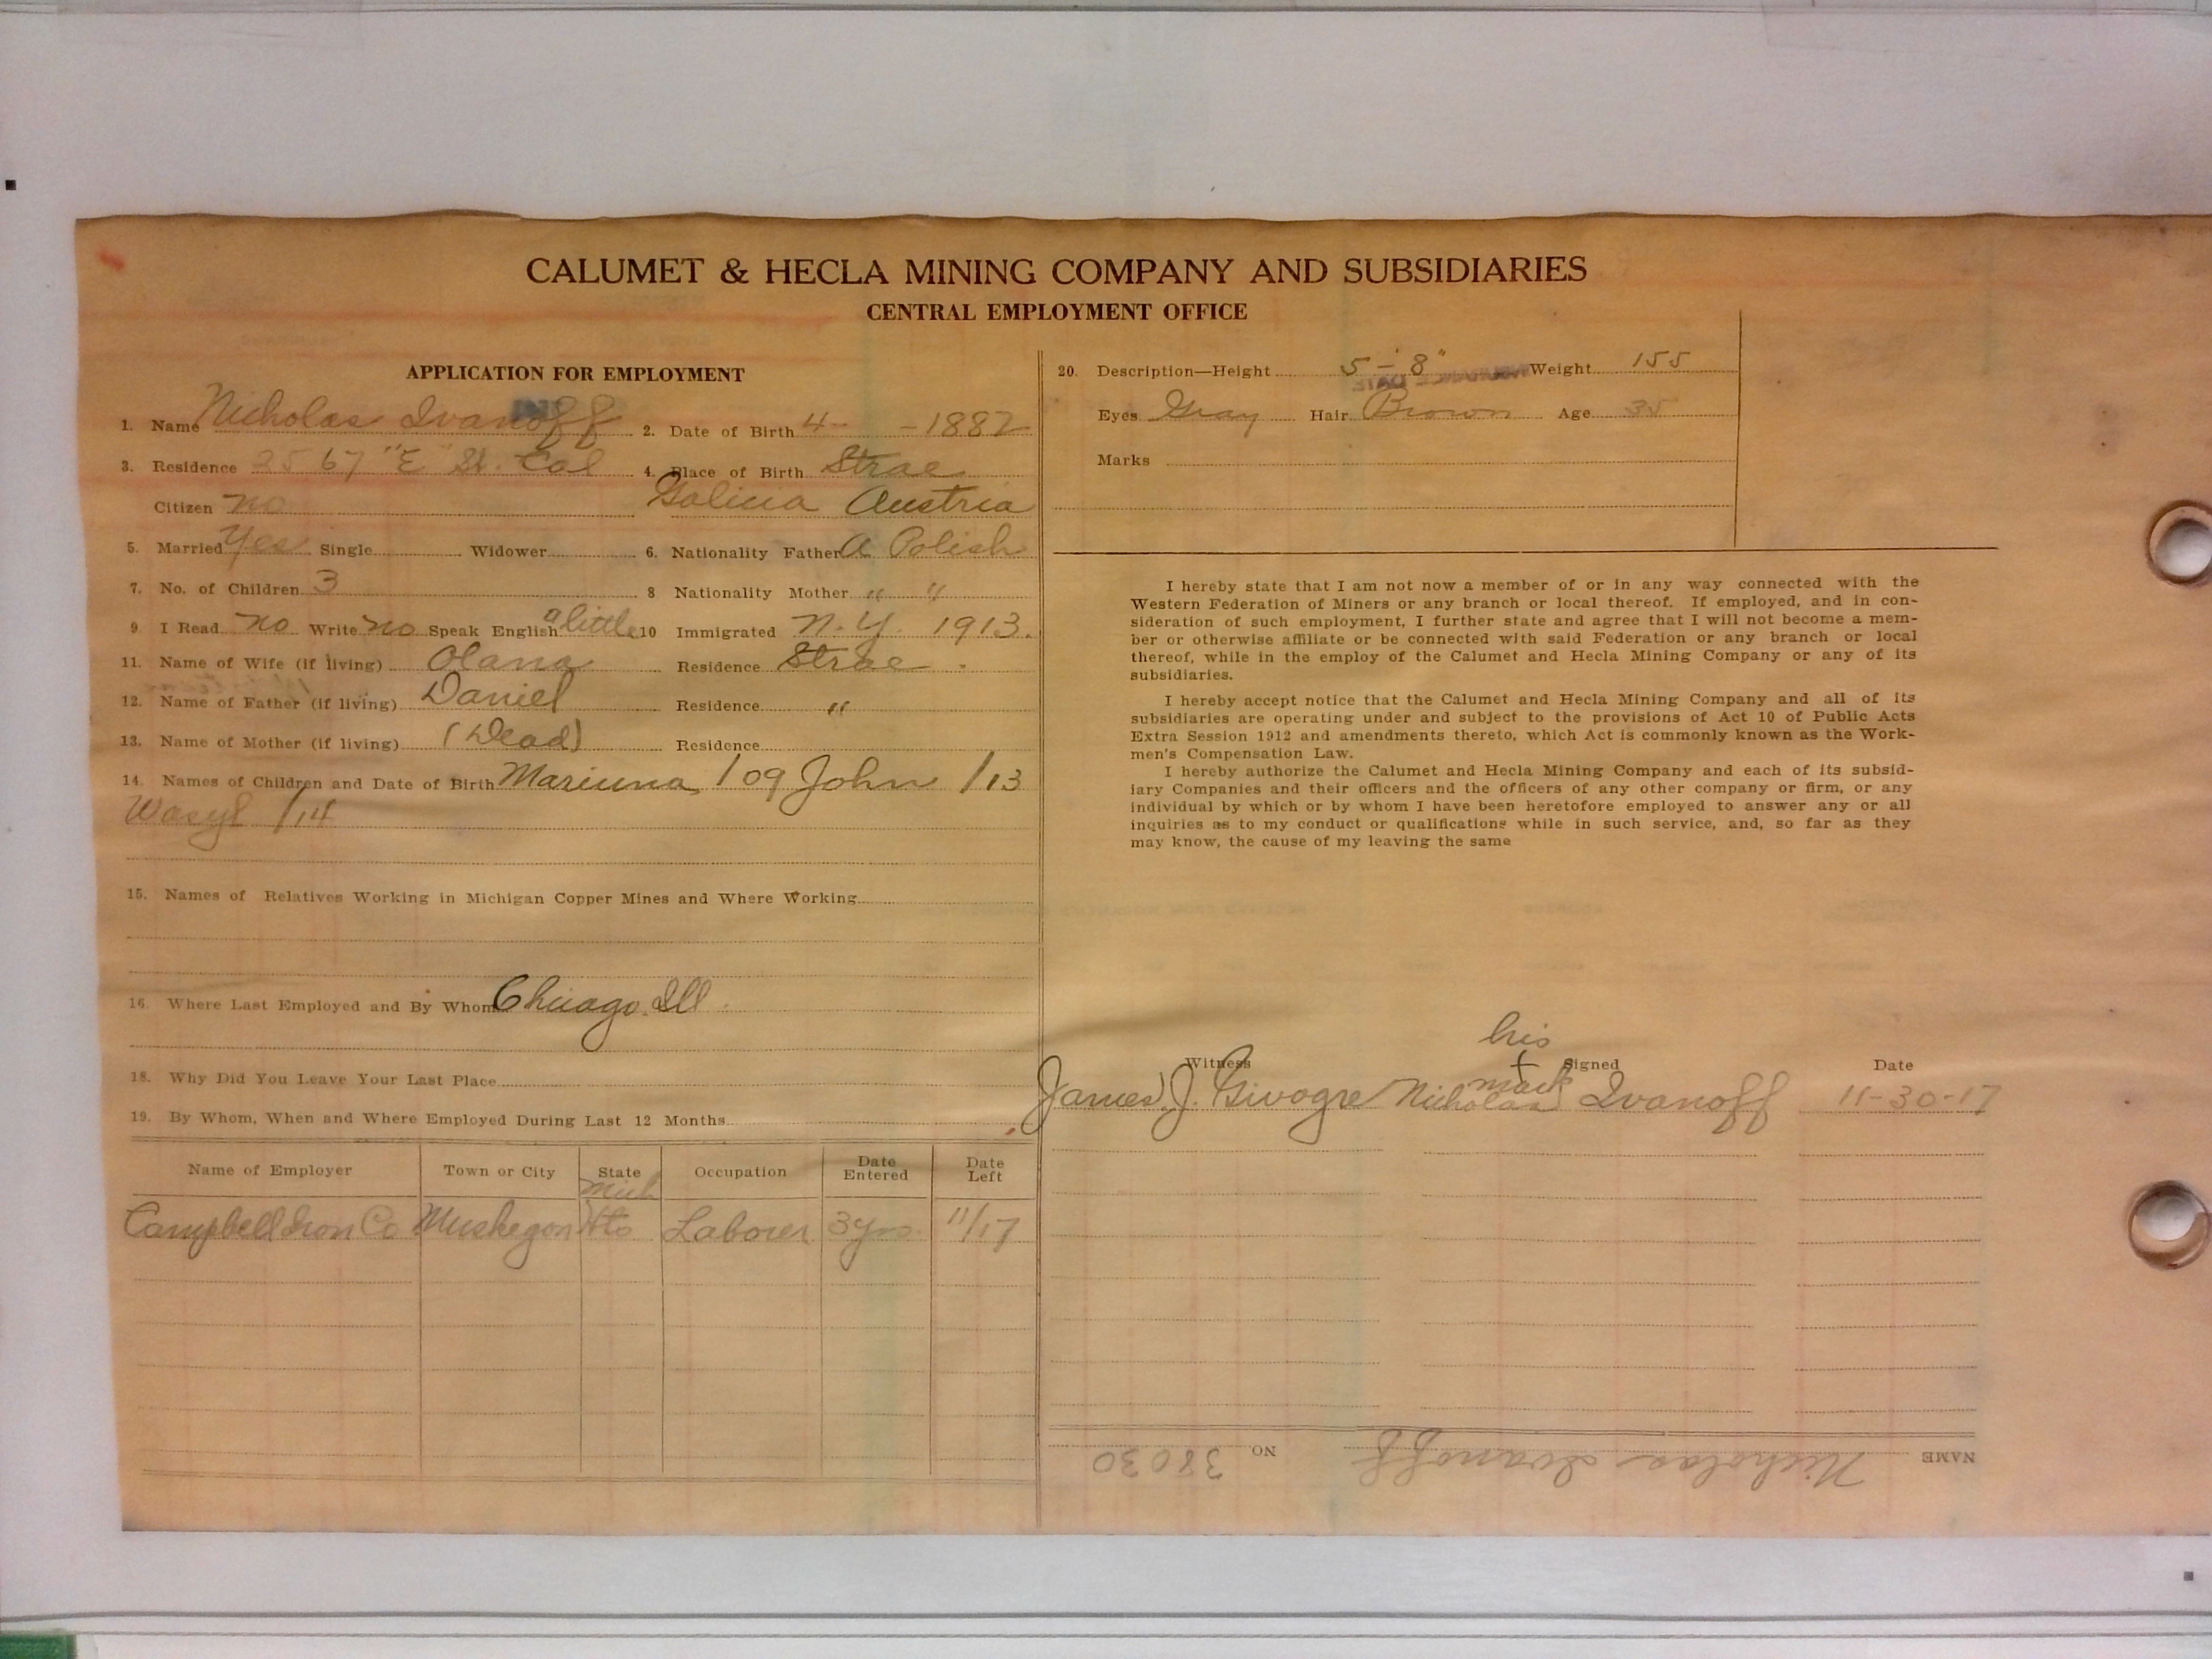 CALUMET & HECLA MINING COMPANY AND SUBSIDIARIES
CENTRAL EMPLOYMENT OFFICE
APPLICATION FOR EMPLOYMENT
1. Name Nicholas Ivanoff 2. Date of Birth 4- -1882
3. Residence 2567 "E" St. Cal 4. Place of Birth Strae
Galicia Austria
Citizen no
5. Married Yes Single Widower 6. Nationality Father A Polish
7. No. of Children 3 8 Nationality Mother " "
9. I Read no Write no Speak English a little 10 Immigrated N.Y. 1913.
11. Name of Wife (if living) Olana Residence Strae.
12. Name of Father (if living) Daniel Residence "
13. Name of Mother (if living) (Dead) Residence
14. Names of Children and Date of Birth Mariuna /09 John /13
Wasyl /14
15. Names of Relatives Working in Michigan Copper Mines and Where Working
16. Where Last Employed and By Whom Chicago, Ill
18. Why Did You Leave Your Last Place
19. By Whom, When and Where Employed During Last 12 Months
Name of Employer Town or City State Occupation Date Entered Date Left
Mich
Campbell Iron Co Muskegon Hts Laborer 3 yrs. 11/17
20. Description—Height 5'-8" Weight 155
Eyes Gray Hair Brown Age 35
Marks
I hereby state that I am not now a member of or in any way connected with the
Western Federation of Miners or any branch or local thereof. If employed, and in con-
sideration of such employment, I further state and agree that I will not become a mem-
ber or otherwise affiliate or be connected with said Federation or any branch or local
thereof, while in the employ of the Calumet and Hecla Mining Company or any of its
subsidiaries.
I hereby accept notice that the Calumet and Hecla Mining Company and all of its
subsidiaries are operating under and subject to the provisions of Act 10 of Public Acts
Extra Session 1912 and amendments thereto, which Act is commonly known as the Work-
men's Compensation Law.
I hereby authorize the Calumet and Hecla Mining Company and each of its subsid-
iary Companies and their officers and the officers of any other company or firm, or any
individual by which or by whom I have been heretofore employed to answer any or all
inquiries as to my conduct or qualifications while in such service, and, so far as they
may know, the cause of my leaving the same
his
Witness + Signed Date
mark
James J. Nicholas Ivanoff 11-30-17
NAME Nicholas Ivanoff NO. 38030